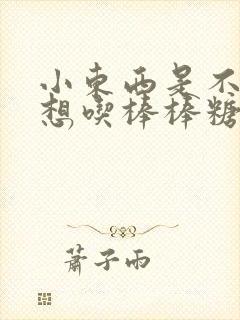 小東西是不
想喫棒棒糖
蕭子雨